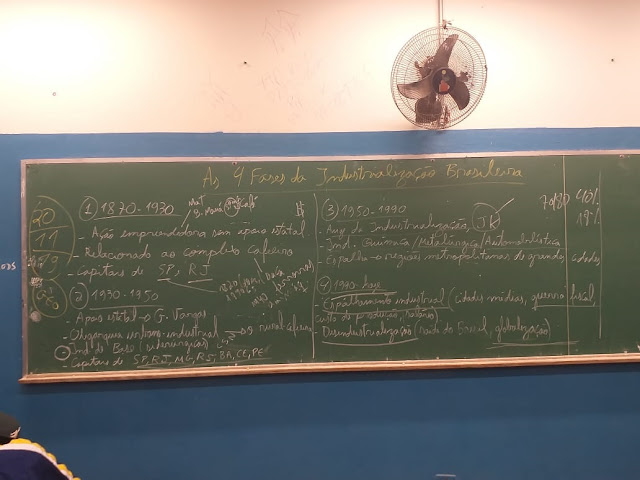 As 4 Fases da Industrialização Brasileira
20
11
① 1870-1930
- Ação empreendedora sem apoio estatal
- Relacionado ao complexo cafeeiro
- Capitais de SP, RJ
② 1930-1950
- Apoio estatal → G. Vargas
- Oligarquia urbano-industrial → rural cafeeira
- Ind. de Base (siderúrgicas)
- Capitais de SP, RJ, MG, RS, BA, CE, PE
③ 1950-1990
- Auge da Industrialização, JK
- Ind. Química/Metalúrgica/Automobilística
- Espalha → regiões metropolitanas de grandes cidades
70/80 40%
19%
④ 1990-hoje
Espalhamento industrial (cidades médias, guerra fiscal,
custo de produção, salário)
Desindustrialização (saída do Brasil, globalização)